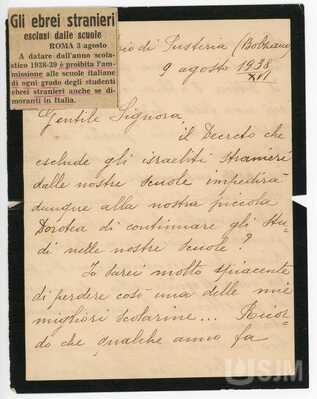 Gli ebrei stranieri
esclusi dalle scuole
ROMA 3 agosto
A datare dall'anno scola-
stico 1938-39 è proibita l'am-
missione alle scuole italiane
di ogni grado degli studenti
ebrei stranieri anche se di-
moranti in Italia.
di Pusteria (Bolzano)
9 agosto 1938
XVI
Gentile Signora,
il Decreto che
esclude gli israeliti stranieri
dalle nostre scuole impedirà
dunque alla nostra piccola
Dorotea di continuare gli stu-
di nelle nostre scuole?
Io sarei molto spiacente
di perdere così una delle mie
migliori scolarine... Ricor-
do che qualche anno fa
USJM